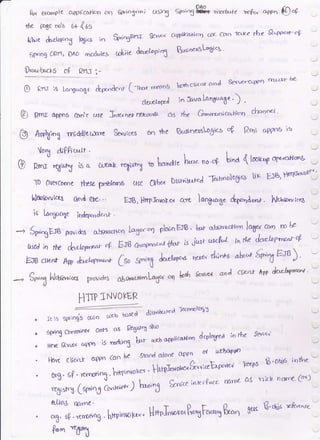 for example application on SpringRmi using Spring DAO module refer appn ⑥ of
the page no's 64 & 65
While developing logics in SpringRmi Server application we can take the Support of
Spring ORM, DAO modules while developing BusinessLogics.
Drawbacks of RMI :-
① RMI is Language dependent (That means both client and Serverappn must be
developed in Java Language.).
② RMI appns can't use Internet network as the Communication channel.
③ Applying middleware Services on the BusinessLogics of RMI appns is
Very difficult.
④ RMI registry is a weak registry to handle huge no. of bind & lookup operations
TO overcome these problems use Other Distributed Technologies like EJB, HttpInvoker,
Webservices and etc...
EJB, HttpInvoker are language dependent. Webservices
is language independent.
→ SpringEJB provides abstraction layer on plain EJB. but abstraction layer can to be
used in the development of EJB component that is just useful in the development of
EJB client App development (So Spring developers never thinks about Spring EJB).
→ Spring WebServices provides abstraction Layer on both Server and client App development.
HTTP INVOKER
• It is spring's own web based distributed Technology
• spring container acts as Registry also
• Here Server appn is nothing but web application deployed in the Server
• Here client appn can be Stand alone appn or webappn
• org. sf. remoting. httpinvoker. HttpInvokerServiceExporter keeps B.obj's in the
registry (spring Container) having Service interface name as nick name (or)
Alias name.
• org. sf. remoting. httpinvoker. HttpInvokerProxyFactoryBean gets B.obj's reference
from registry